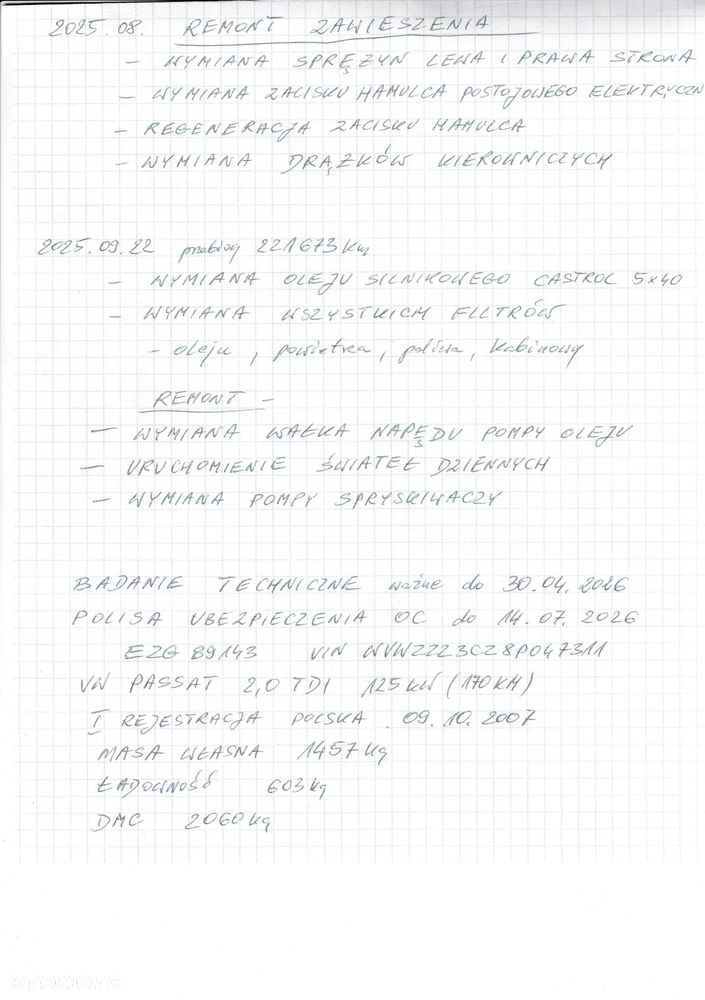 2025.08. REMONT ZAWIESZENIA
- WYMIANA SPRĘŻYN LEWA I PRAWA STRONA
- WYMIANA ZACISKU HAMULCA POSTOJOWEGO ELEKTRYCZN
- REGENERACJA ZACISKU HAMULCA
- WYMIANA DRĄŻKÓW KIEROWNICZYCH
2025.09.22 przebieg 221673 km
- WYMIANA OLEJU SILNIKOWEGO CASTROL 5x40
- WYMIANA WSZYSTKICH FILTRÓW
- oleju, powietrza, paliwa, kabinowy
REMONT -
- WYMIANA WAŁKA NAPĘDU POMPY OLEJU
- URUCHOMIENIE ŚWIATEŁ DZIENNYCH
- WYMIANA POMPY SPRYSKIWACZY
BADANIE TECHNICZNE ważne do 30.04.2026
POLISA UBEZPIECZENIA OC do 14.07.2026
EZG 89143 VIN WVWZZZ3CZ8P047311
VW PASSAT 2,0 TDI 125 kW (170KM)
I REJESTRACJA POLSKA 09.10.2007
MASA WŁASNA 1457 kg
ŁADOWNOŚĆ 603 kg
DMC 2060 kg